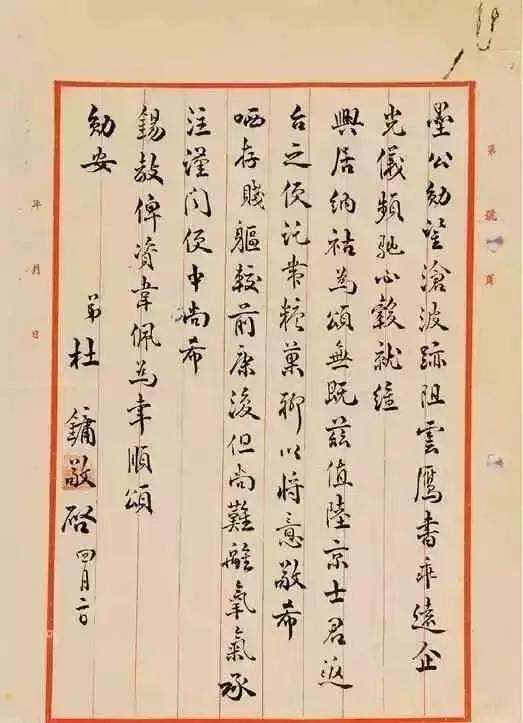 墨公勛鑒滄波跡阻雲鴈書乖遠企
光儀頻馳心轂就維
興居納祜為頌無既茲值陸京士君返
台之便託帶糖菓聊以將意敬希
哂存賤軀較前康復但尚難離氧氣承
注謹聞便中尚希
錫教俾資韋佩為幸順頌
勛安
弟杜鏞敬啓四月二日
第 號 頁
年 月 日